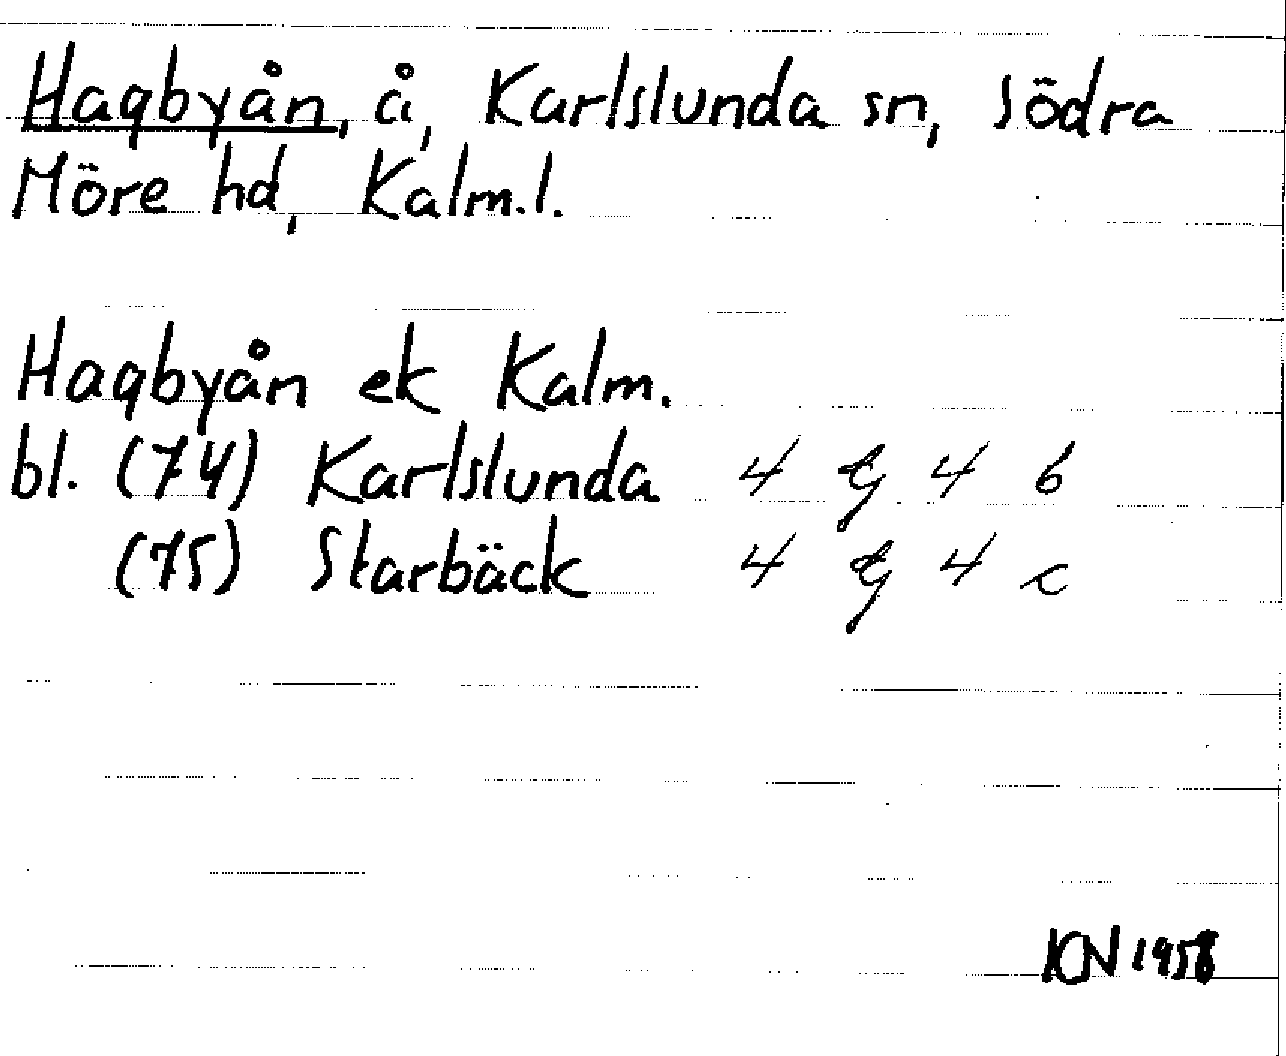 Hagbyån, å, Karlslunda sn, Södra
Möre hd, Kalm.l.
Hagbyån ek Kalm.
bl. (74) Karlslunda 4 G 4 b
(75) Starbäck 4 G 4 c
KN 1958